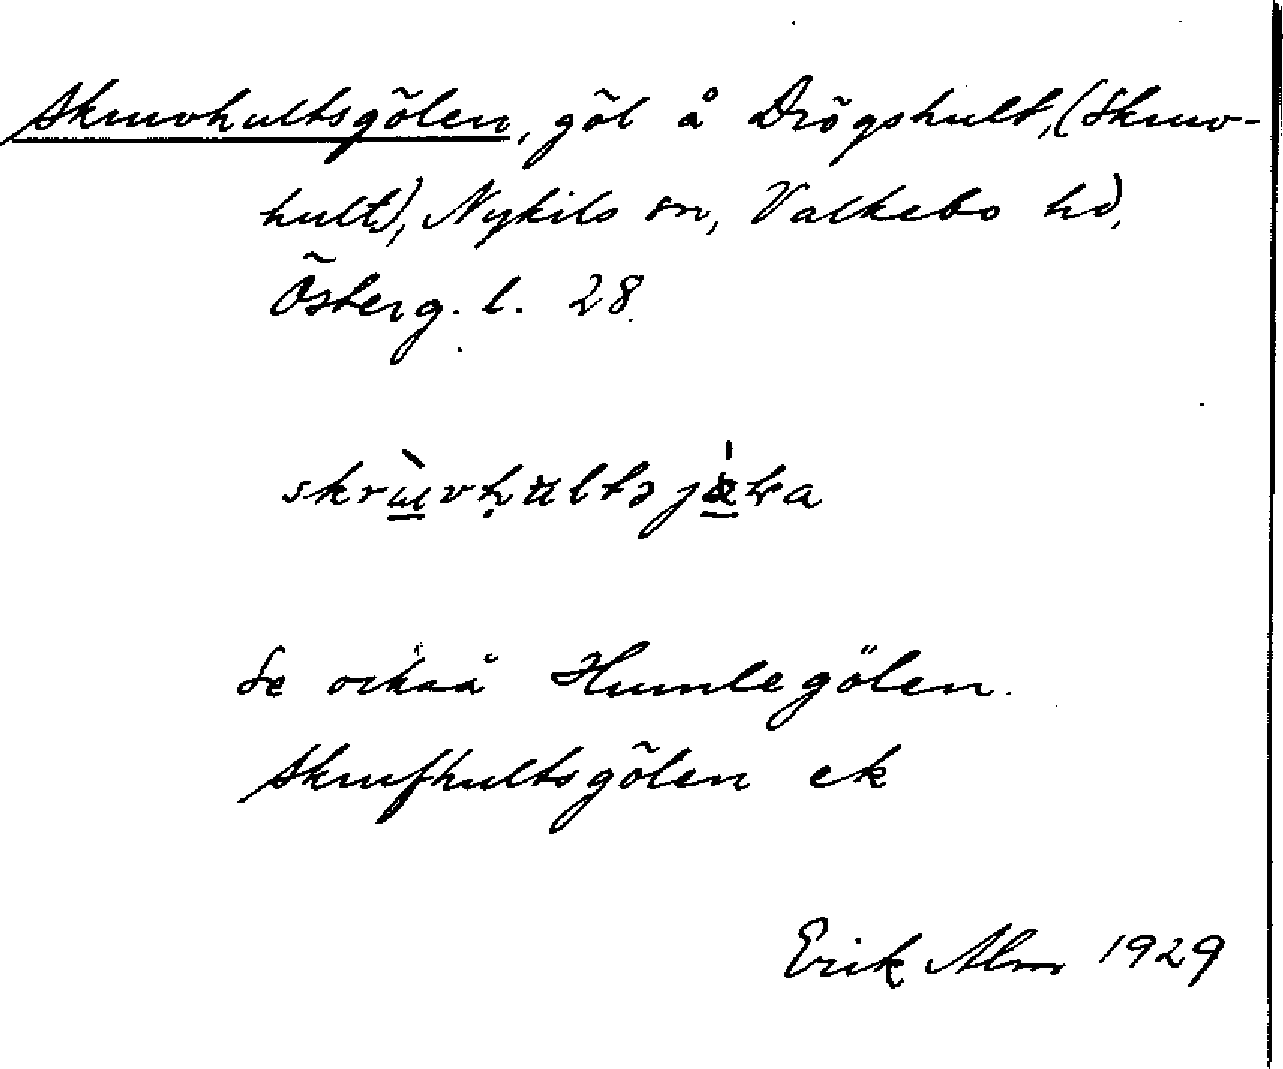 Skruvhultsgölen, göl å Drögshult, (Skruv-
hult), Nykils sn, Valkebo hd,
Österg. l. 28.
Se också Humlegölen.
Skrufhultsgölen ek
Erik Alm 1929